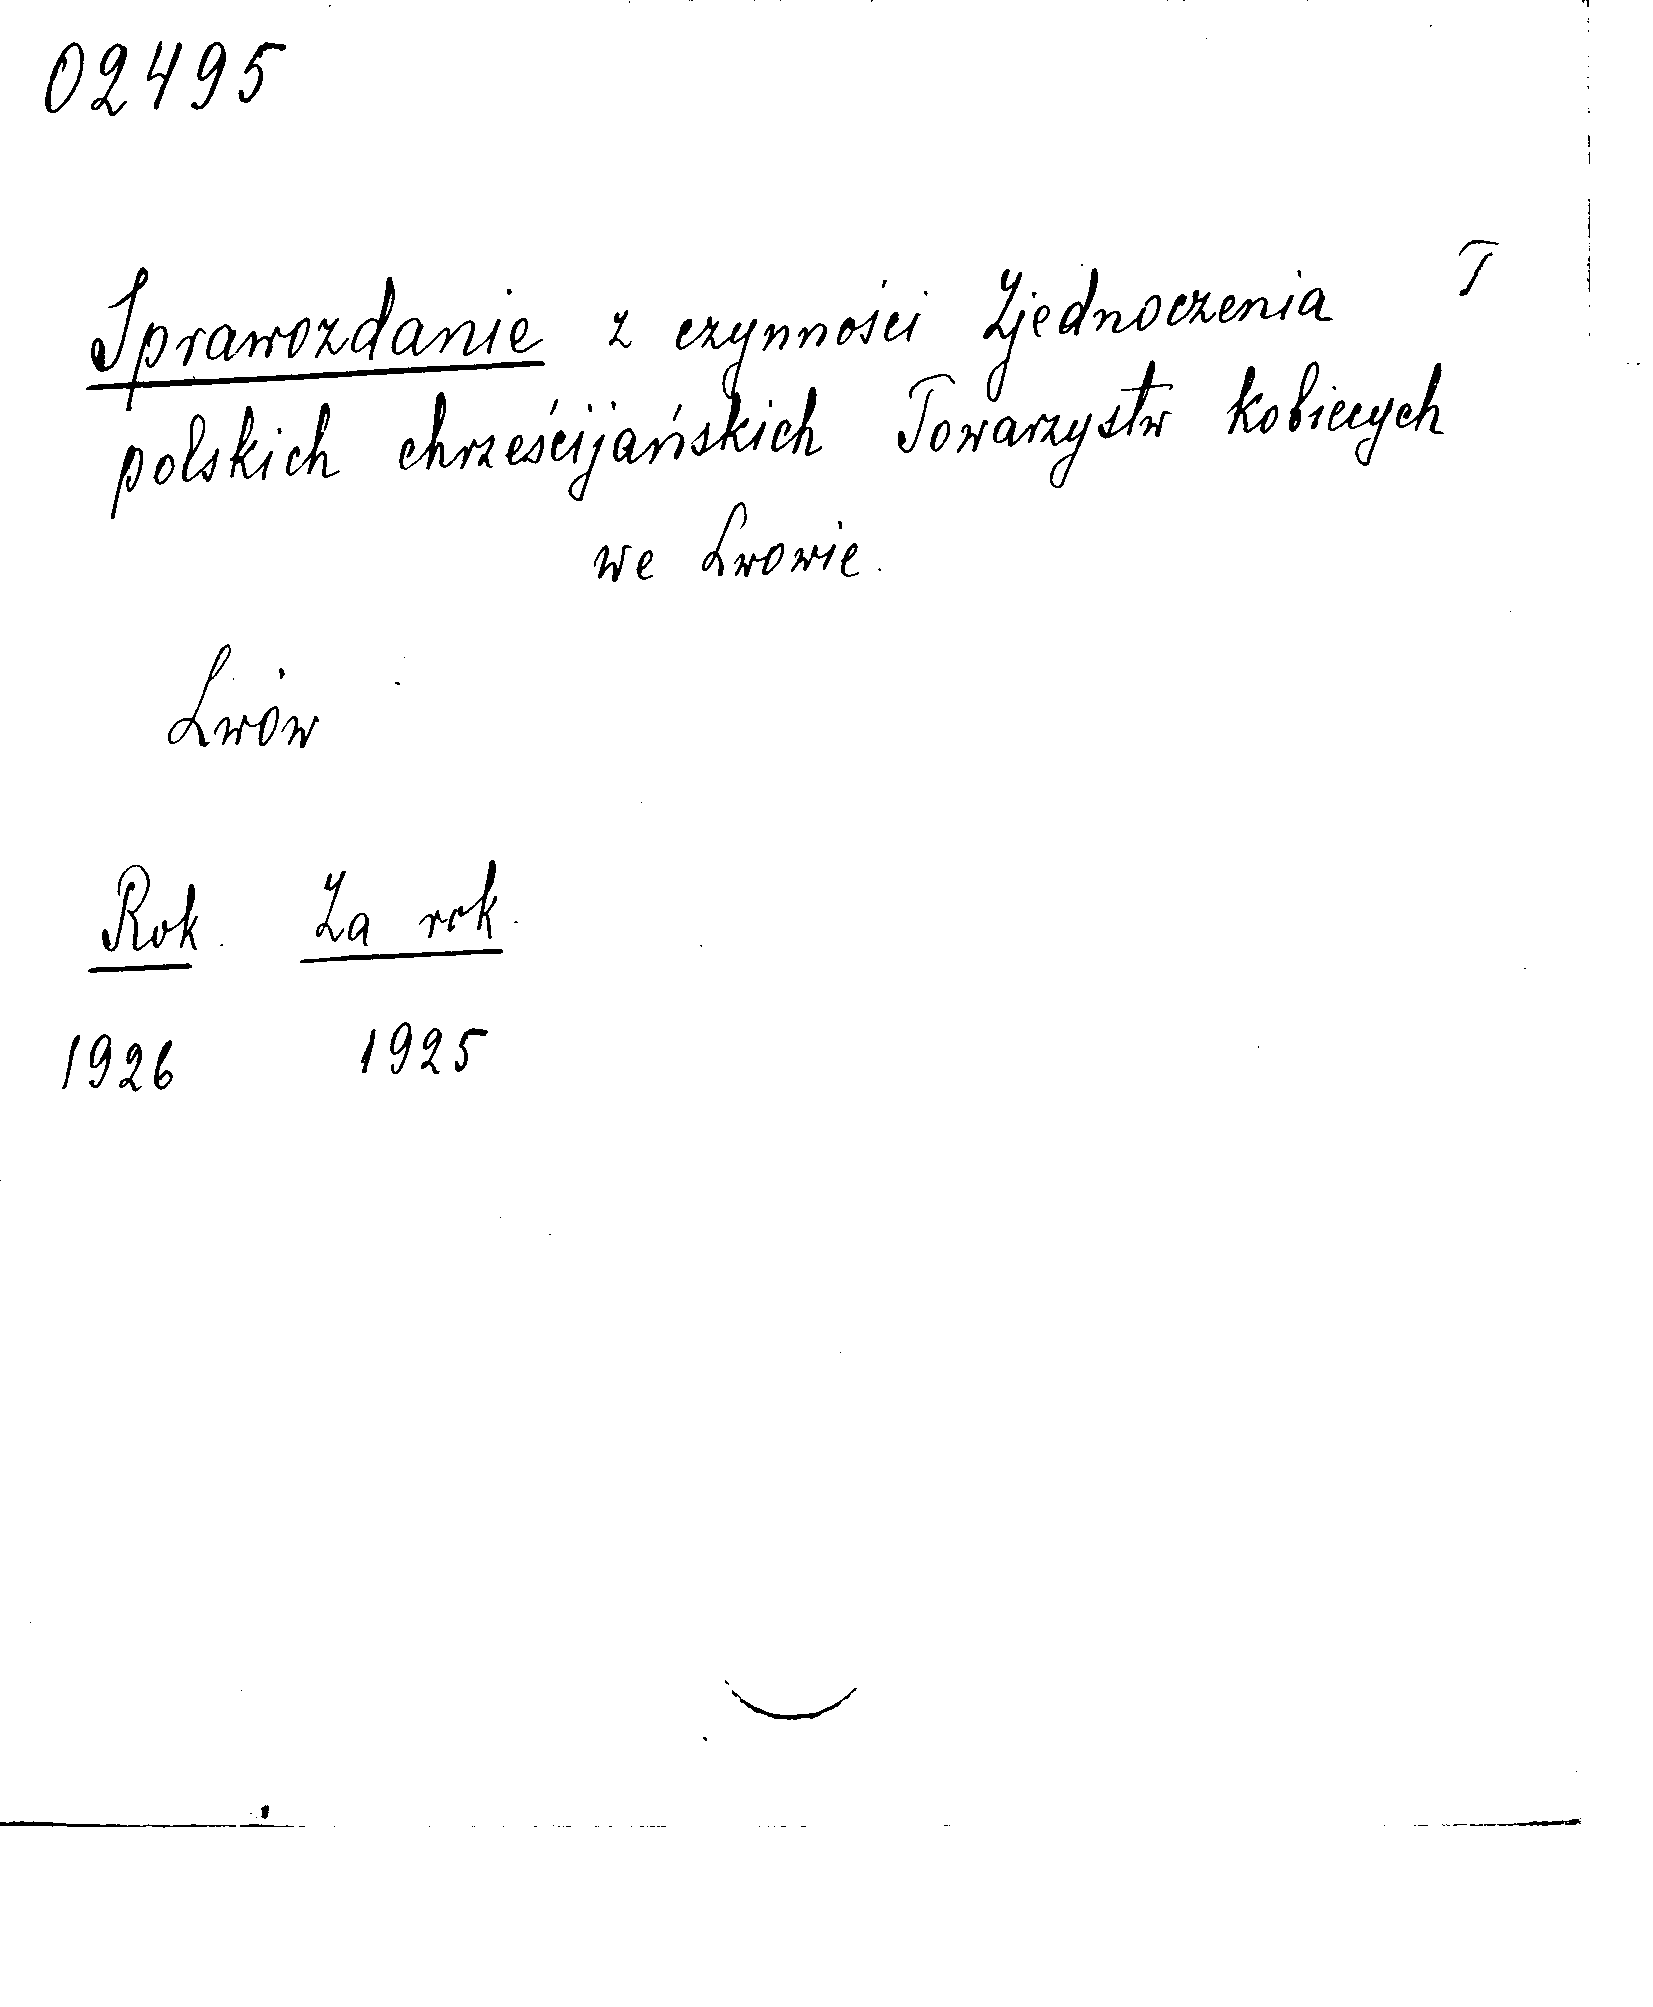 02495
T
Sprawozdanie z czynności Zjednoczenia
polskich chrześcijańskich Towarzystw kobiecych
we Lwowie.
Lwów
Rok Za rok
1926 1925